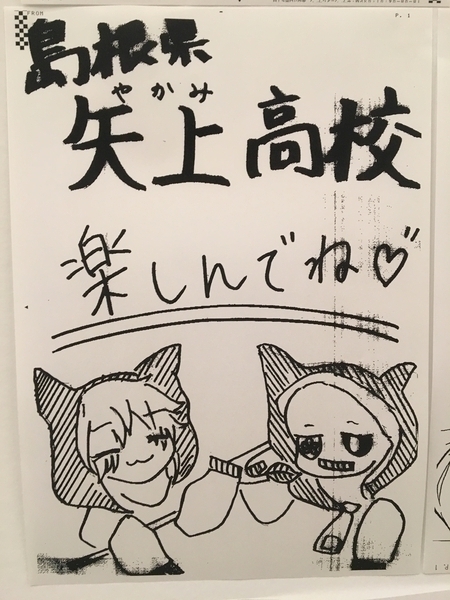 FROM
P. 1
島根県
やかみ
矢上高校
楽しんでね♡